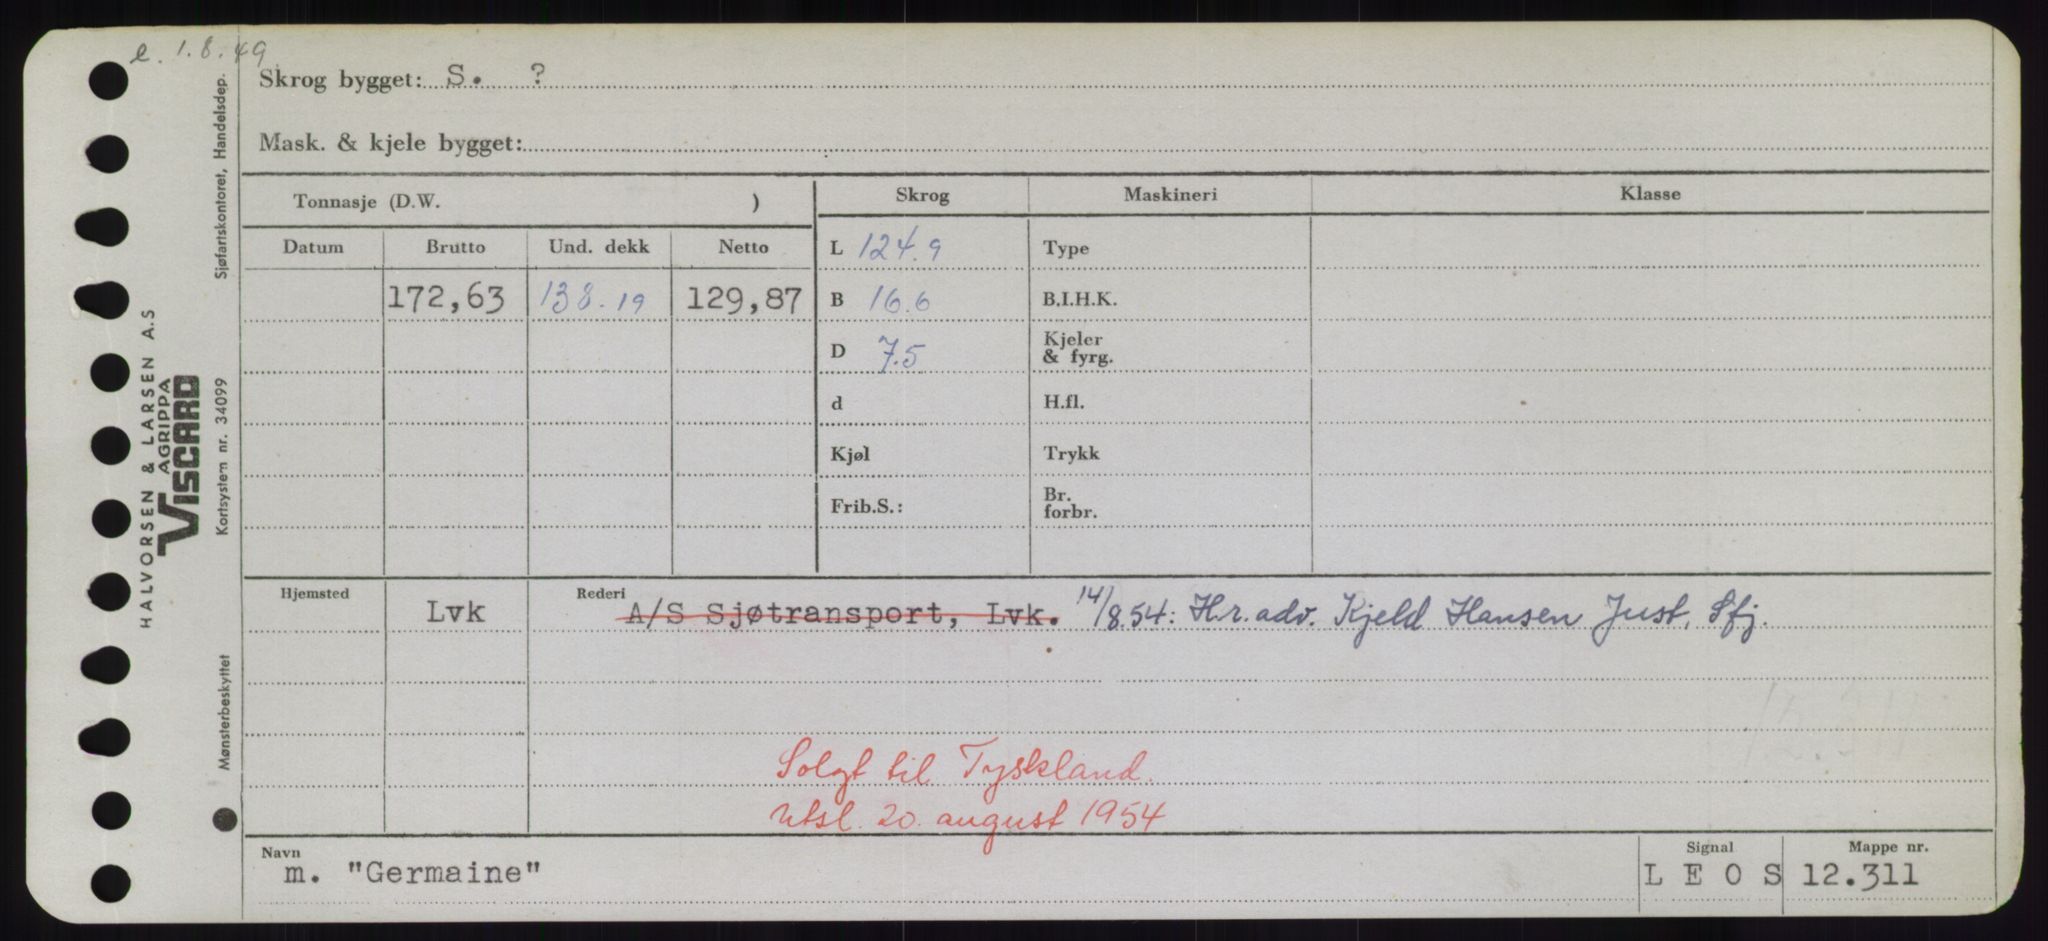 e. 1.8.49
Skrog bygget: S. ?
Mask. & kjele bygget:
Tonnasje (D.W. )
Skrog
Maskineri
Klasse
Datum
Brutto
Und. dekk
Netto
172,63
138.19
129,87
L 124.9
B 16.6
D 7.5
d
Kjøl
Frib.S.:
Type
B.I.H.K.
Kjeler
& fyrg.
H.fl.
Trykk
Br.
forbr.
Hjemsted
Lvk
Rederi
A/S Sjøtransport, Lvk. 14/8.54: H.r. adv. Kjeld Hansen Just, Sfj.
12.311
Solgt til Tyskland.
Utsl. 20. august 1954
Navn
m. "Germaine"
Signal
L E O S
Mappe nr.
12.311
HALVORSEN & LARSEN A.S
AGRIPPA
VISCARD
Mønsterbeskyttet
Kortsystem nr. 34099
Sjøfartskontoret, Handelsdep.